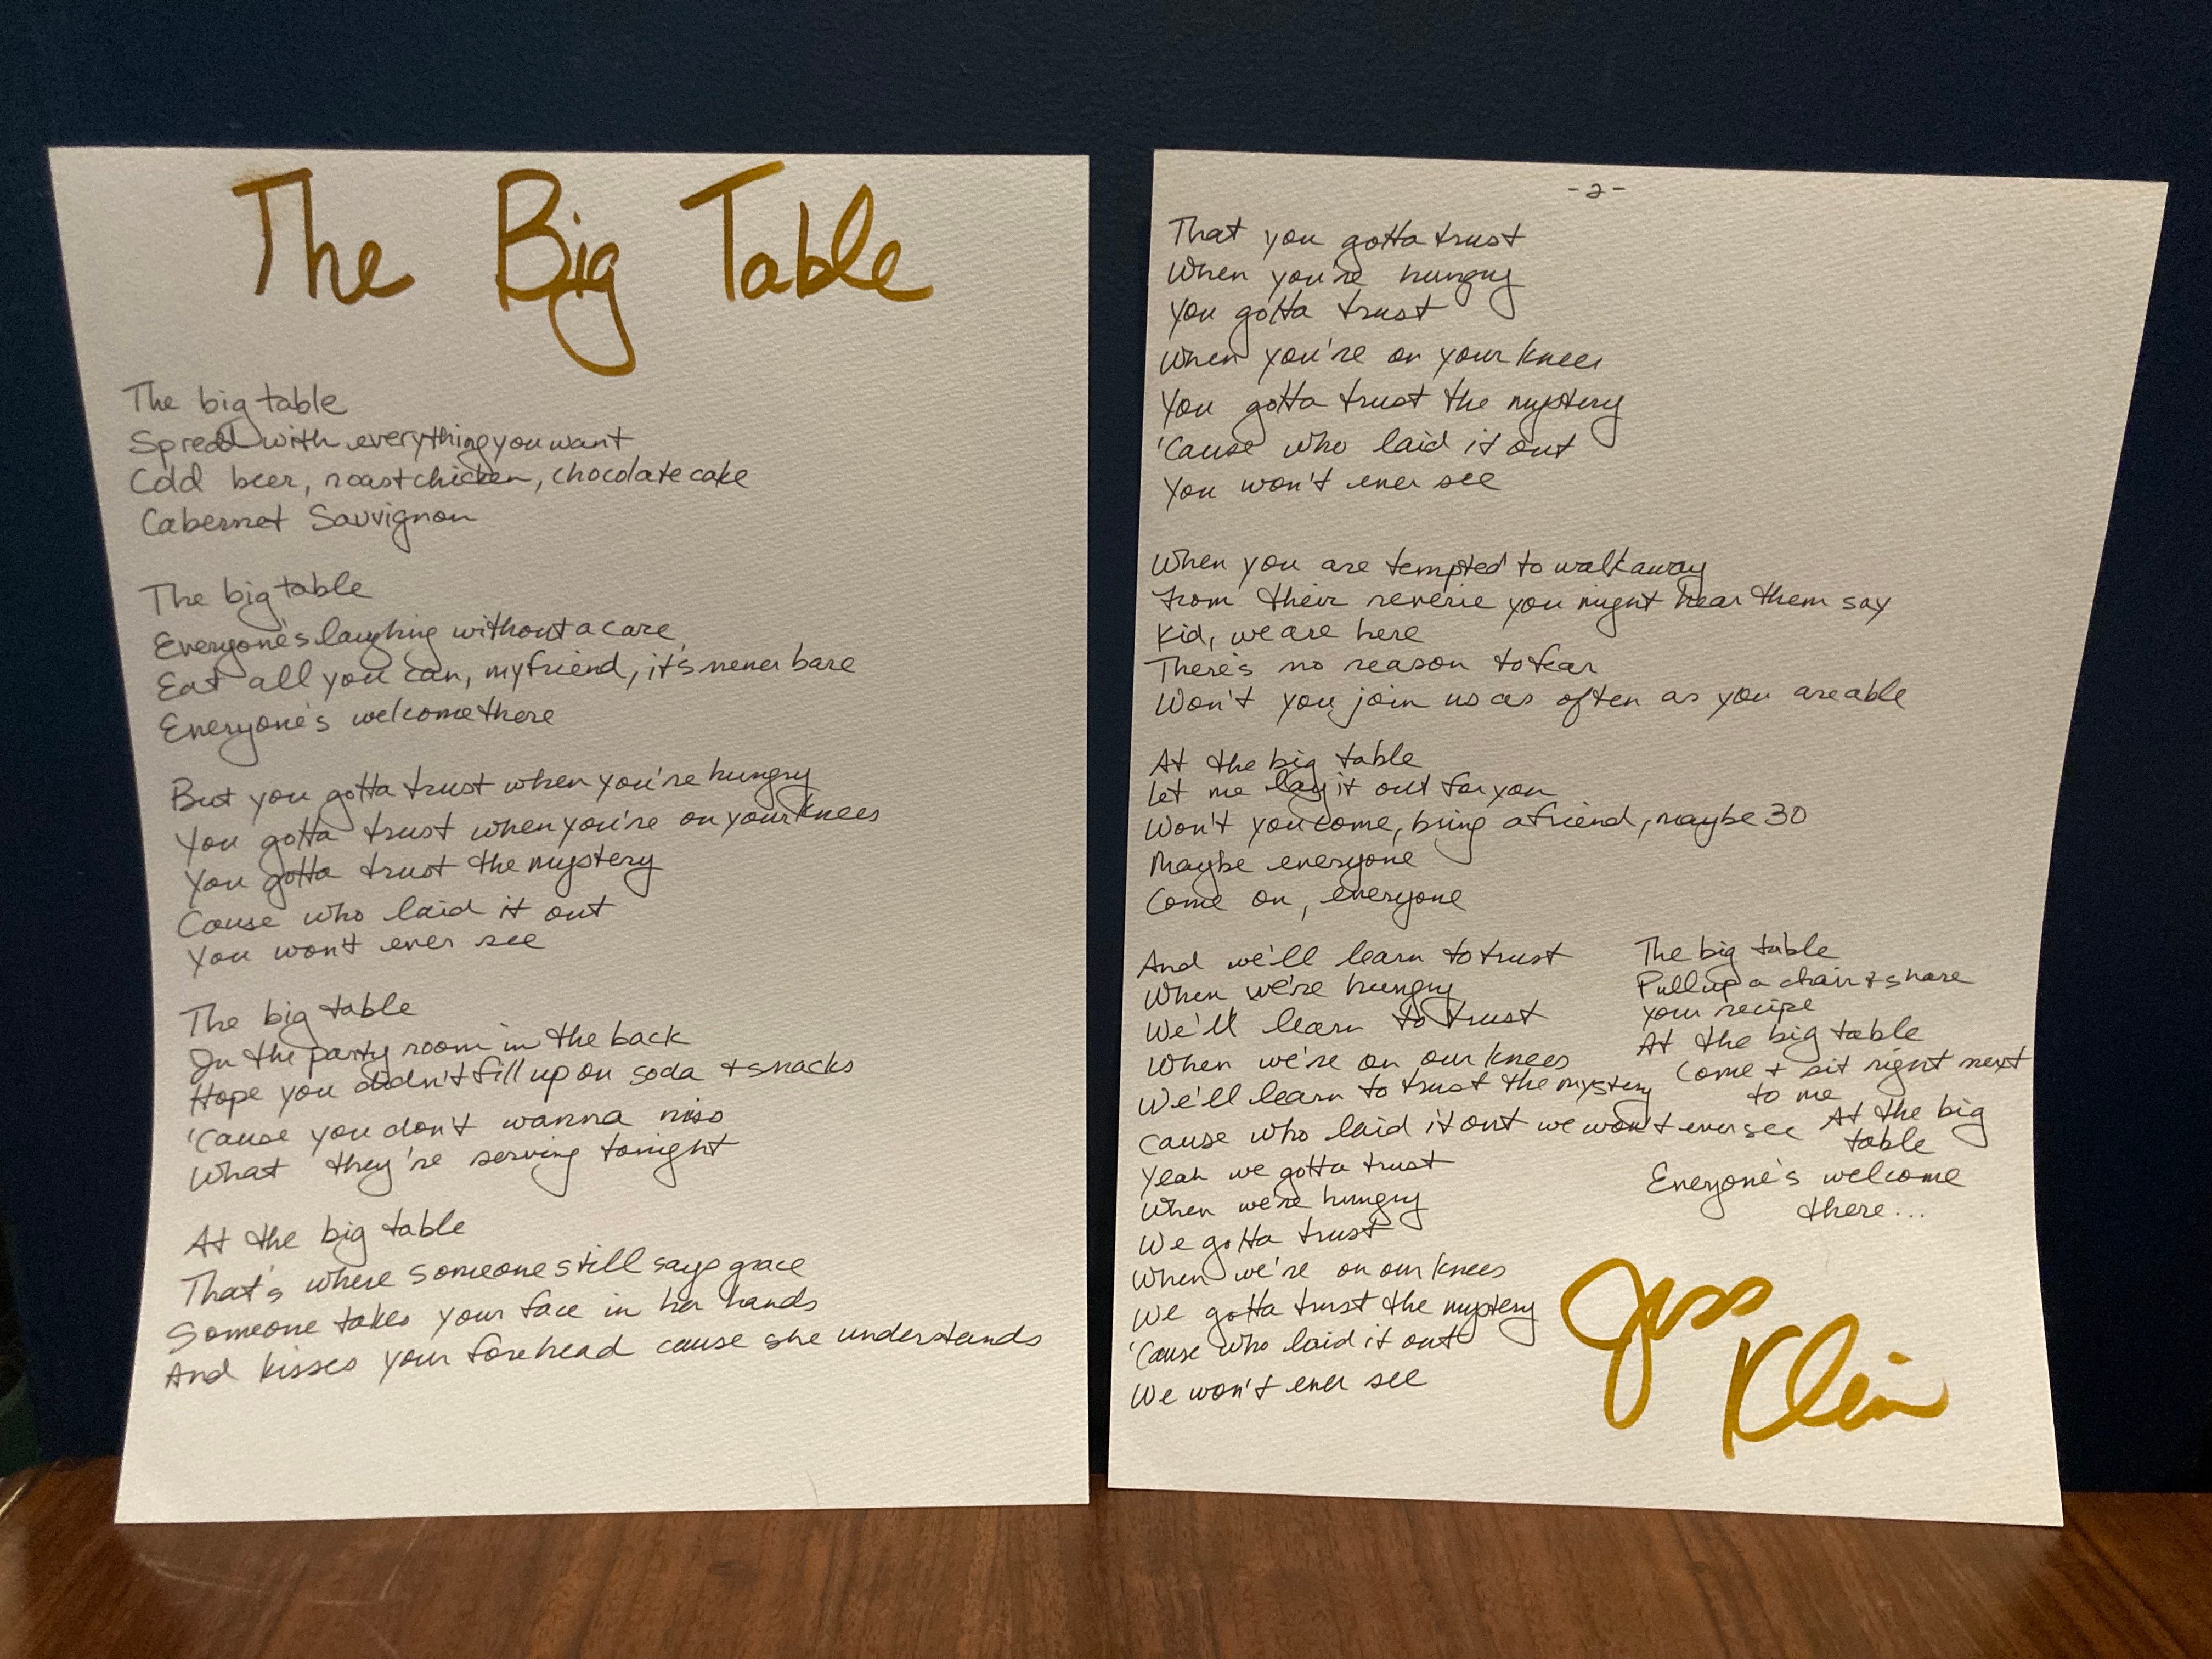 The Big Table
The big table
Spread with everything you want
Cold beer, roast chicken, chocolate cake
Cabernet Sauvignon
The big table
Everyone's laughing without a care
Eat all you can, my friend, it's never bare
Everyone's welcome there
But you gotta trust when you're hungry
You gotta trust when you're on your knees
You gotta trust the mystery
Cause who laid it out
You won't ever see
The big table
In the party room in the back
Hope you didn't fill up on soda + snacks
'Cause you don't wanna miss
What they're serving tonight
At the big table
That's where someone still says grace
Someone takes your face in her hands
And kisses your forehead cause she understands
-2-
That you gotta trust
When you're hungry
You gotta trust
When you're on your knees
You gotta trust the mystery
'Cause who laid it out
You won't ever see
When you are tempted to walk away
From their reverie you might hear them say
Kid, we are here
There's no reason to fear
Won't you join us as often as you are able
At the big table
Let me lay it out for you
Won't you come, bring a friend, maybe 30
Maybe everyone
Come on, everyone
And we'll learn to trust
When we're hungry
We'll learn to trust
When we're on our knees
We'll learn to trust the mystery
Cause who laid it out we won't ever see
Yeah we gotta trust
When we're hungry
We gotta trust
When we're on our knees
We gotta trust the mystery
'Cause who laid it out
We won't ever see
The big table
Pull up a chair + share
your recipe
At the big table
Come + sit right next
to me
At the big
table
Everyone's welcome
there...
Jess
Klein